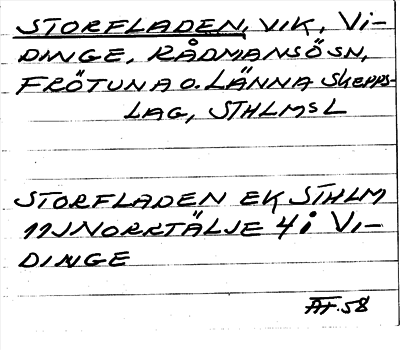 STORFLADEN, VIK, VI-
DINGE, RÅDMANSÖ SN,
FRÖTUNA O. LÄNNA SKEPPS-
LAG, STHLMS L
STORFLADEN EK STHLM
11J NORRTÄLJE 4 i VI-
DINGE
ÅF. 58